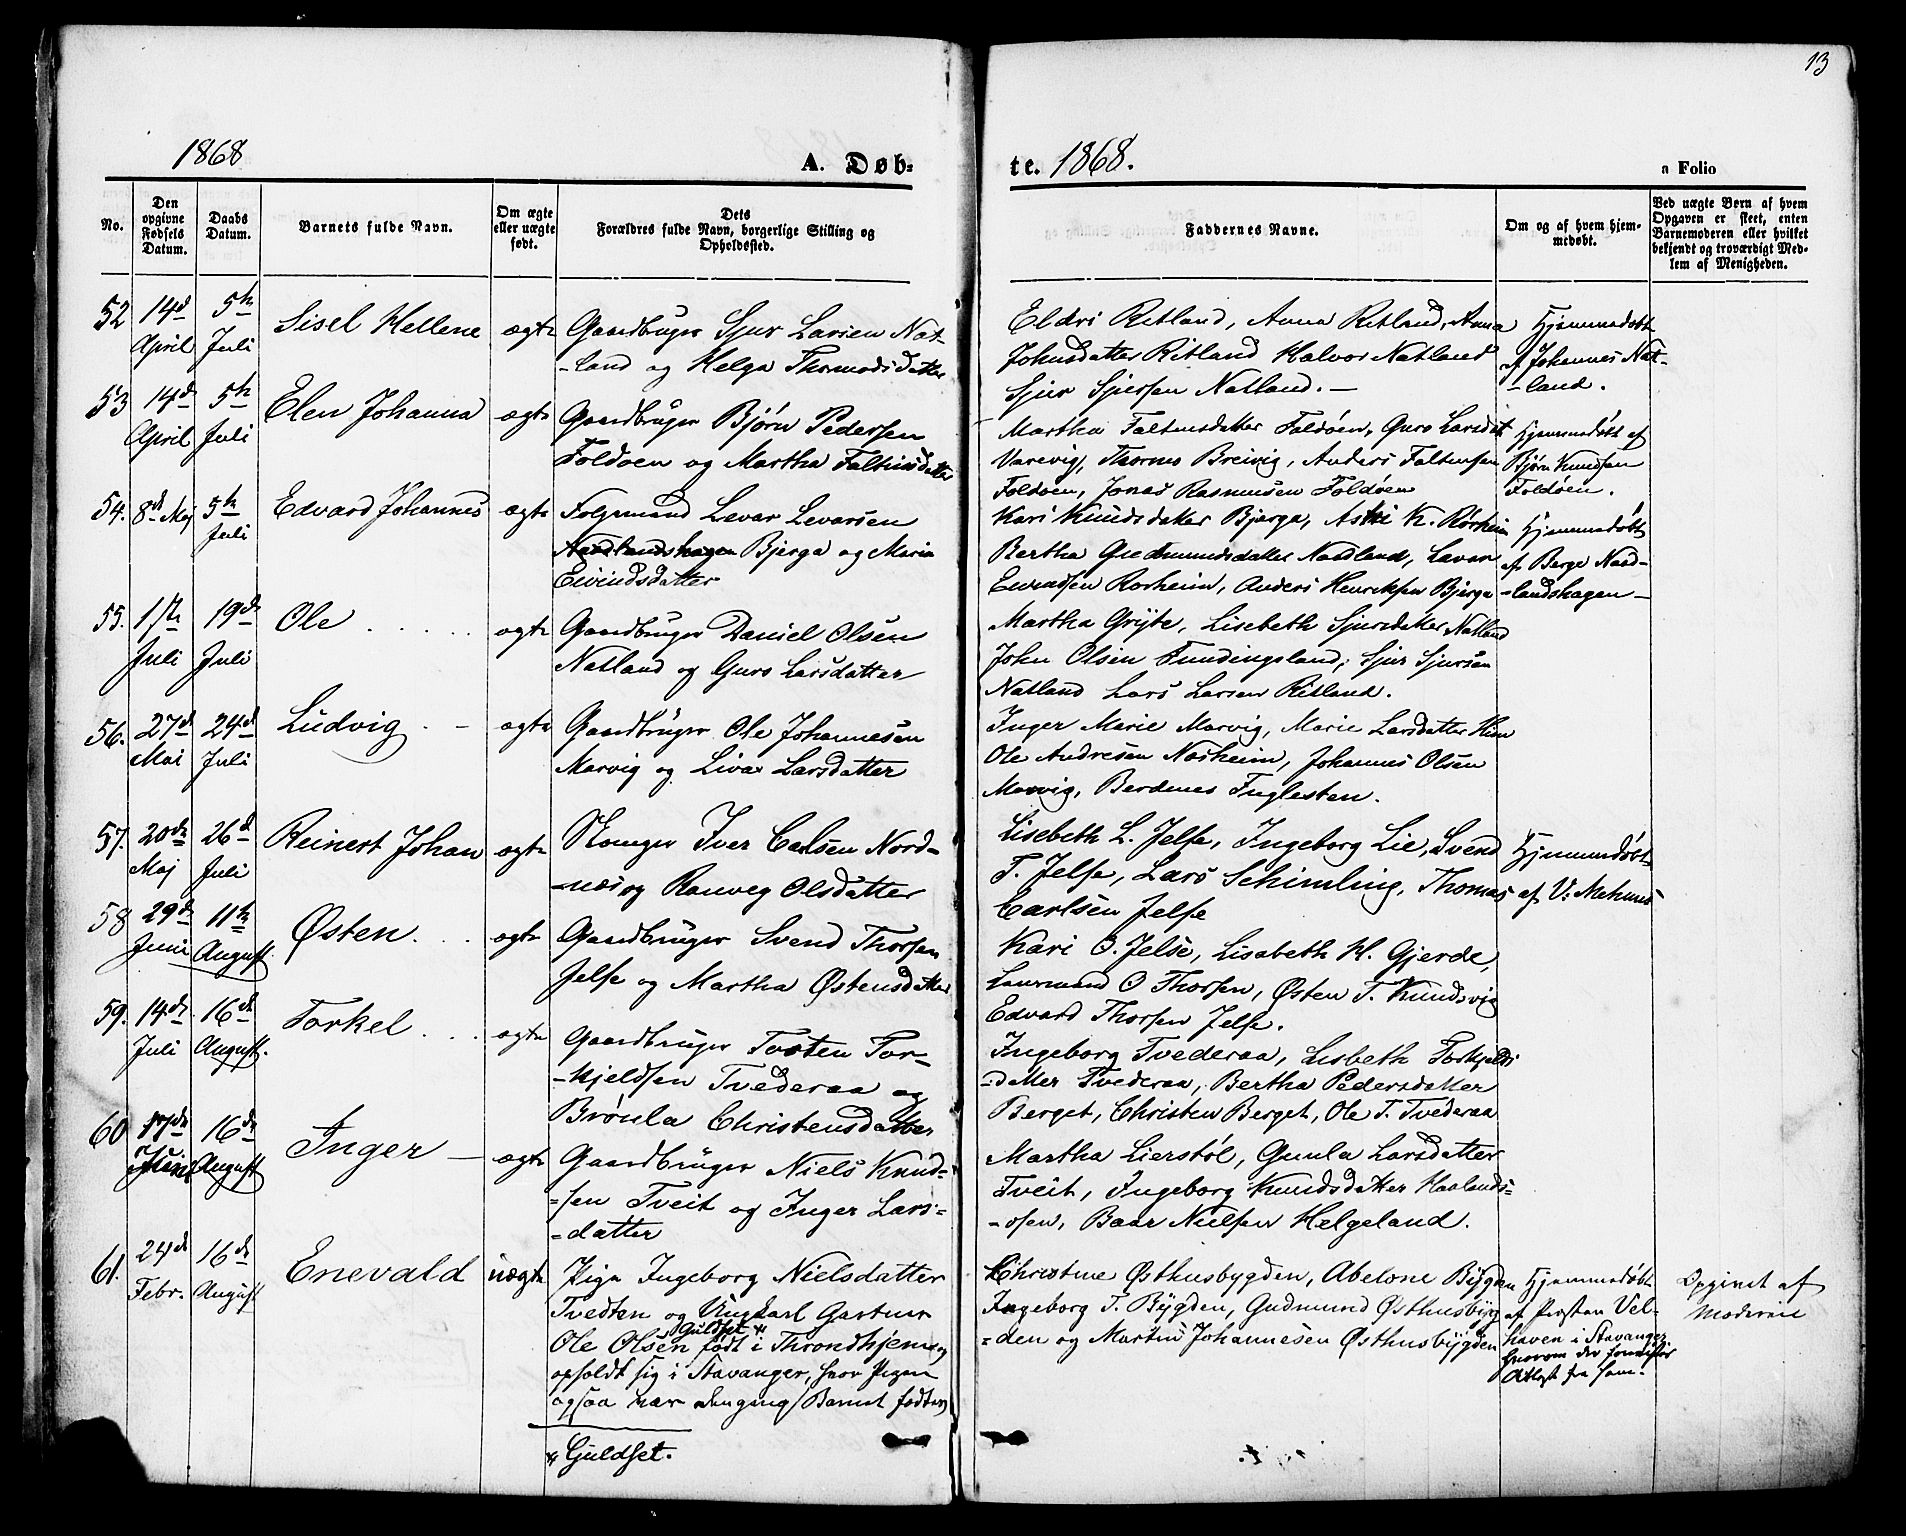 13
1868
A. Døb-
te. 1868.
Folio
No.
Den
opgivne
Fødsels
Datum.
Daabs
Datum.
Barnets fulde Navn.
Om ægte
eller uægte
født.
Dets
Forældres fulde Navn, borgerlige Stilling og
Opholdssted.
Faddernes Navne.
Om og af hvem hjem-
medøbt.
Ved uægte Børn af hvem
Opgaven er skeet, enten
Barnemoderen eller hvilket
bekjendt og troværdigt Med-
lem af Menigheden.
52
14d
April
5te
Juli
Sisel Hellene
ægte
Gaardbruger Sjur Larsen Nat-
-land og Helga Thormodsdatter
Eldri Ritland, Anna Ritland, Anna
Johnsdatter Ritland Halvor Natland
Sjur Sjursen Natland. —
Hjemmedøbt
af Johannes Nat-
-land.
53
14d
April
5te
Juli
Elen Johanna
ægte
Gaardbruger Bjørn Pedersen
Foldøen og Martha Faltinsdatter
Martha Faltinsdatter Foldøen, Guro Larsdat
Varevig, Thornes Breivig, Anders Faltinsen
Foldøen, Jonas Rasmusen Foldøen
Hjemmedøbt af
Bjørn Knudsen
Foldøen.
54.
8d Maj
5te
Juli
Edvard Johannes
ægte
Folgemand Levar Levarsen
Nordlandshagen Bjerga og Maria
Eivindsdatter
Kari Knudsdatter Bjerga, Astri K. Rørheim
Bertha Gudmundsdatter Nordland, Lavar
Eivindsen Rorheim, Anders Henriksen Bjerga
Hjemmedøbt
af Berge Nord-
-landshagen —
55.
1ste
Juli
19de
Juli
Ole . . . . .
ægte
Gaardbruger Daniel Olsen
Natland og Guro Larsdatter
Martha Grijte, Lisebeth Sjursdatter Natland
John Olsen Fundingsland, Sjur Sjursen
Natland Lars Larsen Ritland.
56.
27d
Mai
24d
Juli
Ludvig . -
ægte
Gaardbruger Ole Johannesen
Marvig og Liva Larsdatter
Inger Marie Marvig, Marie Larsdatter Hiim
Ole Andresen Nosheim, Johannes Olsen
Marvig, Berdenes Fuglesten.
57.
20de
Maj
26d
Juli
Reinert Johan
ægte
Iver Carlsen Nord-
-næs og Ranveg Olsdatter
Lisebeth L. Jelse, Ingeborg Lie, Svend
T. Jelse, Lars Schimling, Thomas
Carlsen Jelse
Hjemmedøbt
af V. Mehuus
58
29d
Juni
11te
August
Østen . . .
ægte
Gaardbruger Svend Thorsen
Jelse og Martha Østensdatter
Kari O. Jelse, Lisabeth H. Gjerde,
Laurmand O Thorsen, Østen T. Knudsvig
Edvard Thorsen Jelse.
59.
14de
Juli
16d
August.
Torkel . . .
ægte
Gaardbruger Tosten Tor-
-kjeldsen Tvederaa og
Brønla Christensdatter
Ingeborg Tvederaa, Lisbeth Torkjelds
-datter Tvederaa, Bertha Pedersdatter
Berget, Christen Berget, Ole T. Tvederaa
60
17de
16de
August
Inger —
ægte
Gaardbruger Niels Knud-
-sen Tveit og Inger Lars-
-datter
Martha Lierstøl, Gunla Larsdatter
Tveit, Ingeborg Knudsdatter Haalands-
-osen, Baar Nielsen Helgeland.
61.
24d
Febr.
16de
August
Enevald
uægte
Pige Ingeborg Nielsdatter
Tvedten og Ungkarl Gartner
Guldset *
Ole Olsen født i Throndhjem og
opholdt sig i Stavanger, hvor Pigen
ogsaa var dengang / Barnet født er)
* Guldset.
Christine Østhusbygden, Abelone Bygden
Ingeborg T. Bygden, Gudmund Østhusbyg
-den og Martin Johannesen Østhusbygden
Hjemmedøbt
af Presten Vel-
haven i Stavanger
hvorom der foreviistes
Attest fra ham.
Opgivet af
Moderen